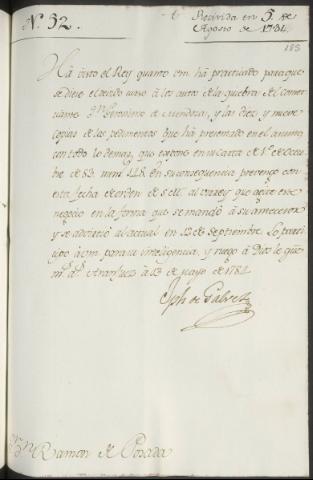 N. 52.
Recivida en 5 de
Agosto de 1784.
183
Há visto el Rey quanto vm. há practicado para que
se diese el devido curso á los autos de la quiebra del comer
ciante Dn. Geronimo de Mendoza, y las diez y nueve
copias de los pedimentos que há presentado en el asunto
con todo lo demas, que expone en su carta de 1º de Octu
bre de 83. num. 148. En su consequencia prevengo con
esta fecha de orden de S. M. al Virrey que agite ese
negocio en la forma que se mandó á su antecesor
y se advirtió al actual en 12 de Septiembre. Lo parti
cipo á vm. para su inteligencia, y ruego á Dios le gue.
ms. as. Aranjuez á 23 de mayo de 1784.
Jph de Galvez
Sor. Dn. Ramon de Posada